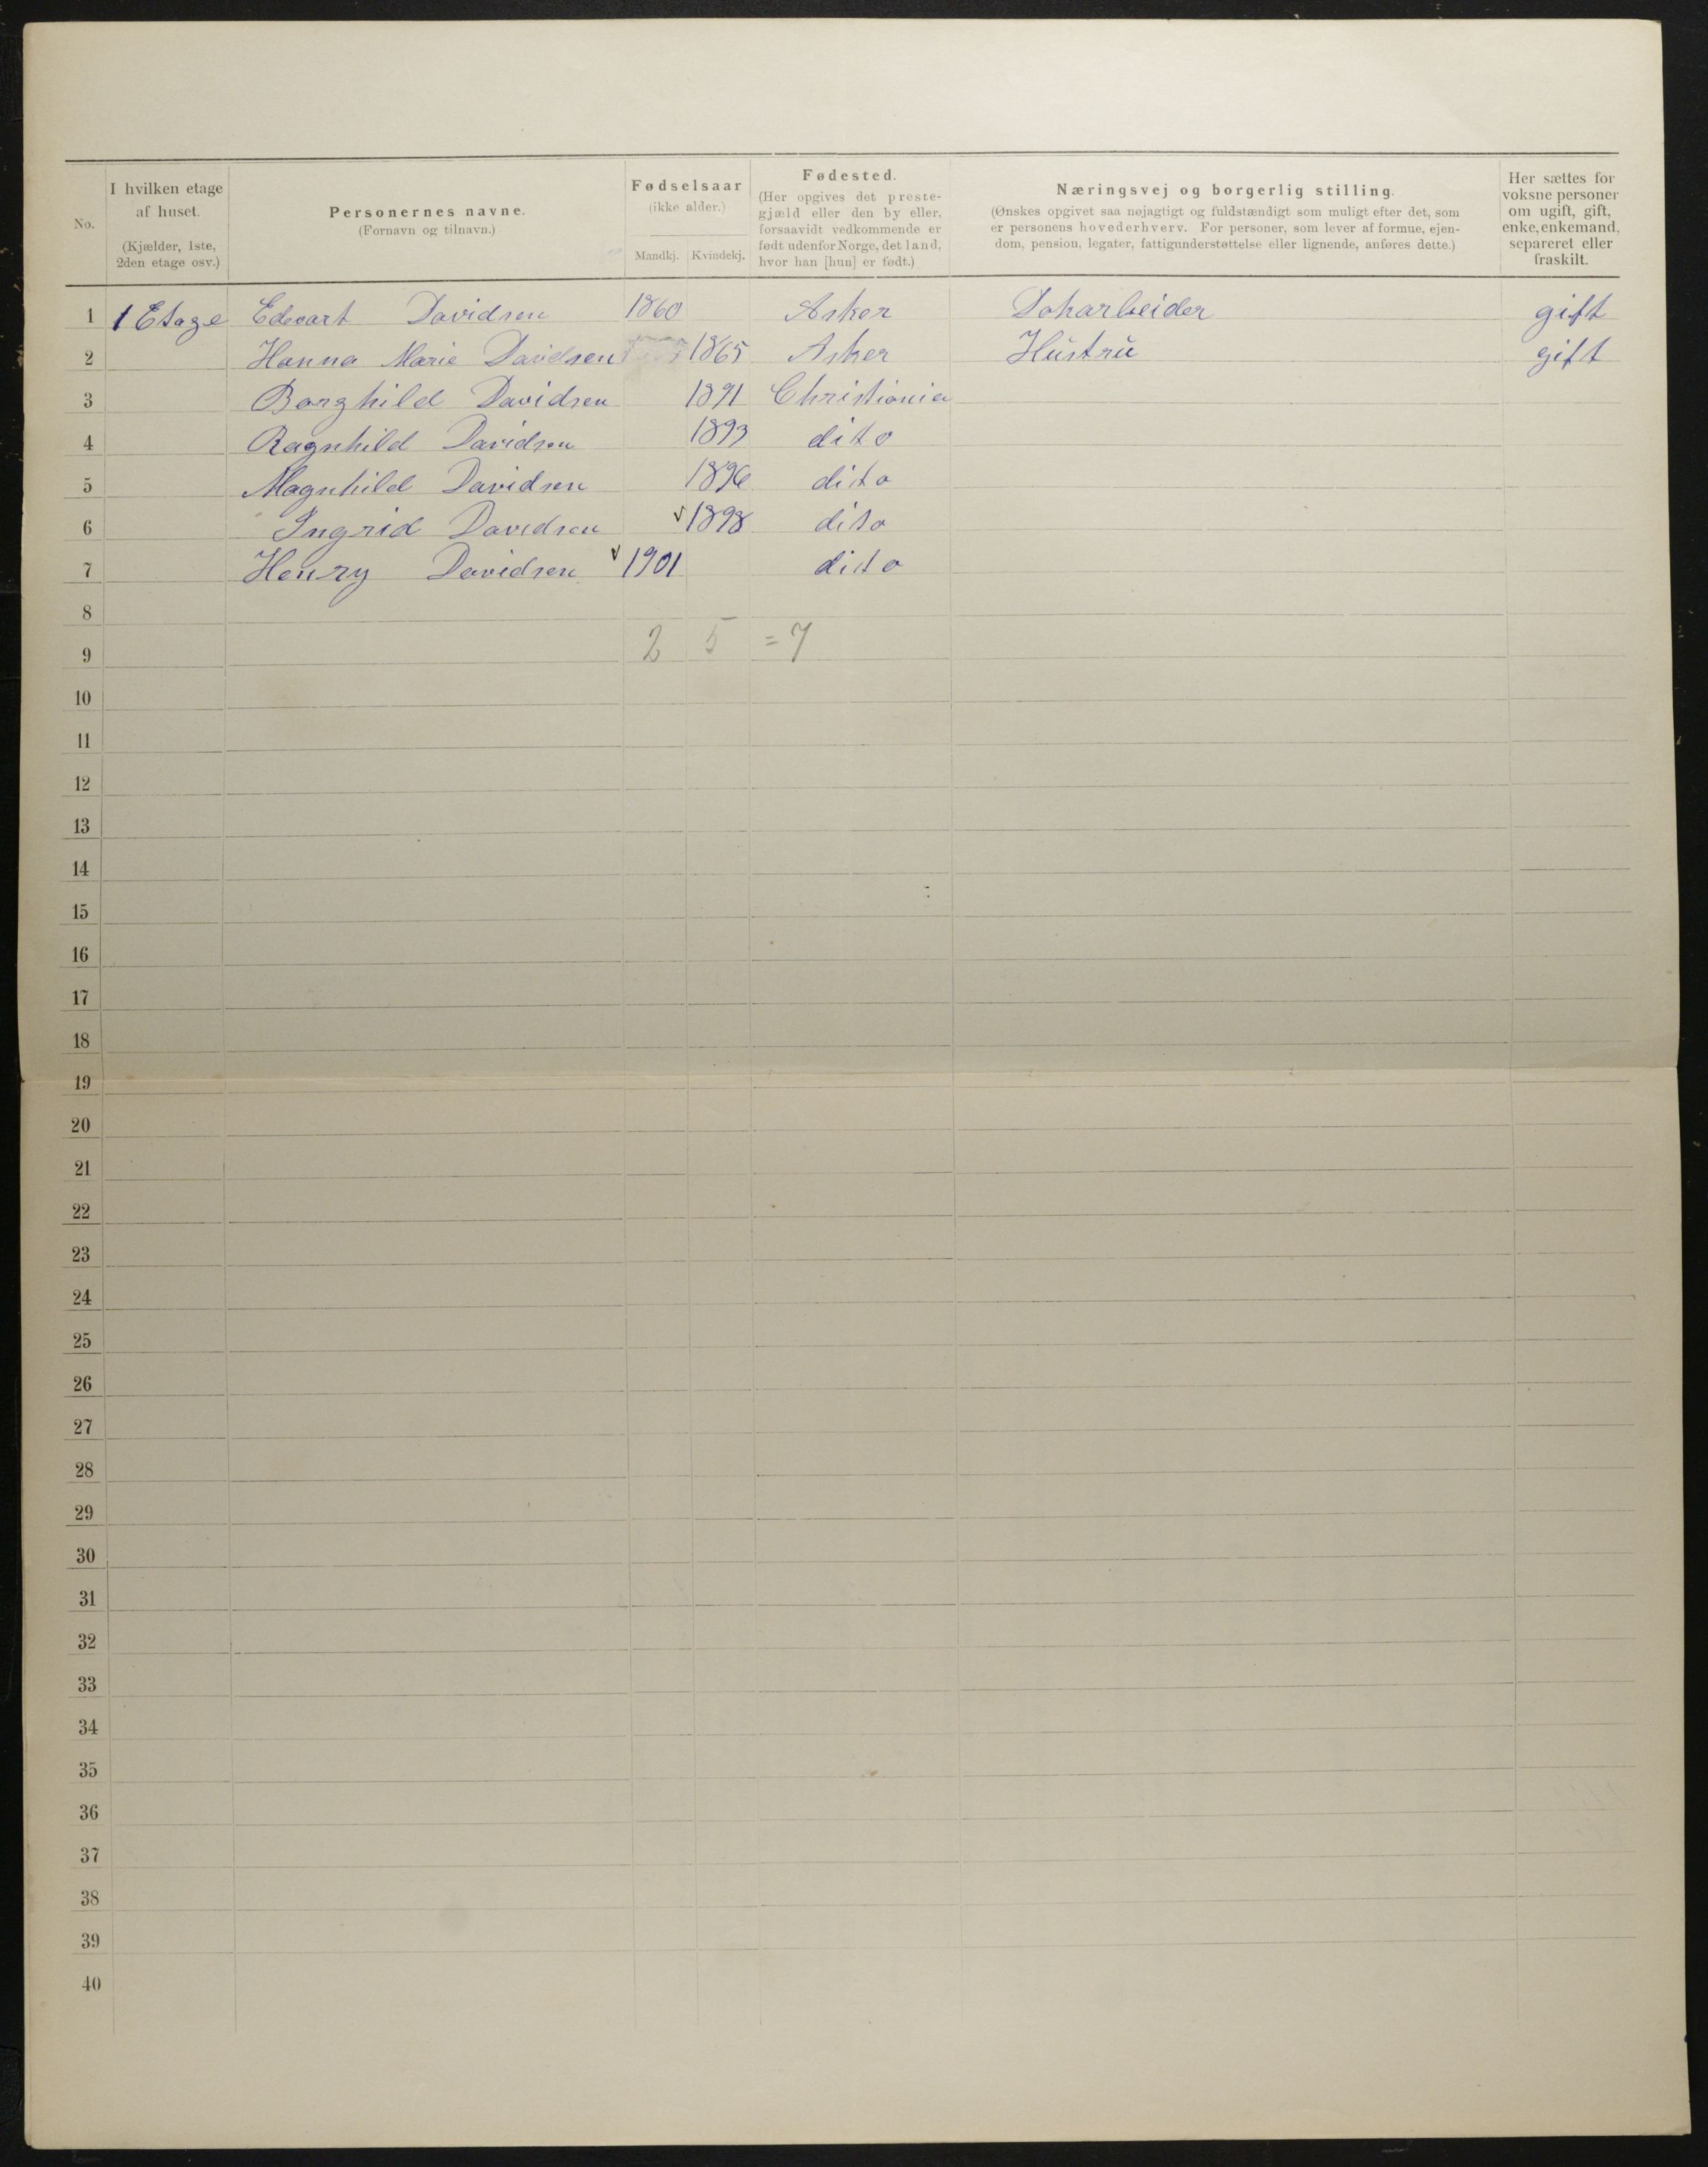 No.
I hvilken etage af huset.
(Kjælder, 1ste, 2den etage osv.)
Personernes navne.
(Fornavn og tilnavn.)
Fødselsaar
(ikke alder.)
Mandkj. Kvindekj.
Fødested.
(Her opgives det prestegjæld eller den by eller, forsaavidt vedkommende er født udenfor Norge, det land, hvor han [hun] er født.)
Næringsvej og borgerlig stilling.
(Ønskes opgivet saa nøjagtigt og fuldstændigt som muligt efter det, som er personens hovederhverv. For personer, som lever af formue, ejendom, pension, legater, fattigunderstøttelse eller lignende, anføres dette.)
Her sættes for voksne personer om ugift, gift, enke, enkemand, separeret eller fraskilt.
1 1 Etage Edevart Davidsen 1860 Asker Dokarbeider gift
2 Hanna Marie Davidsen 1865 Asker Hústrú gift
3 Borghild Davidsen 1891 Christiania
4 Ragnhild Davidsen 1893 dito
5 Magnhild Davidsen 1896 dito
6 Ingrid Davidsen v 1898 dito
7 Henry Davidsen v 1901 dito
8
9 2 5 = 7
10
11
12
13
14
15
16
17
18
19
20
21
22
23
24
25
26
27
28
29
30
31
32
33
34
35
36
37
38
39
40